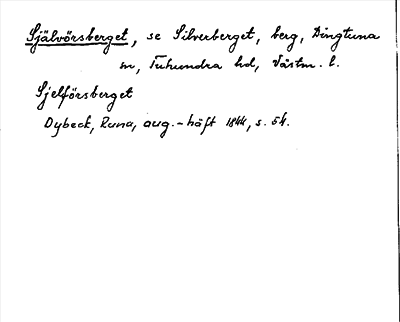 Självörsberget, se Silverberget, berg, Dingtuna
sn, Tuhundra hd, Västm. l.
Sjelförsberget
Dybeck, Runa, aug.-häft 1844, s. 54.